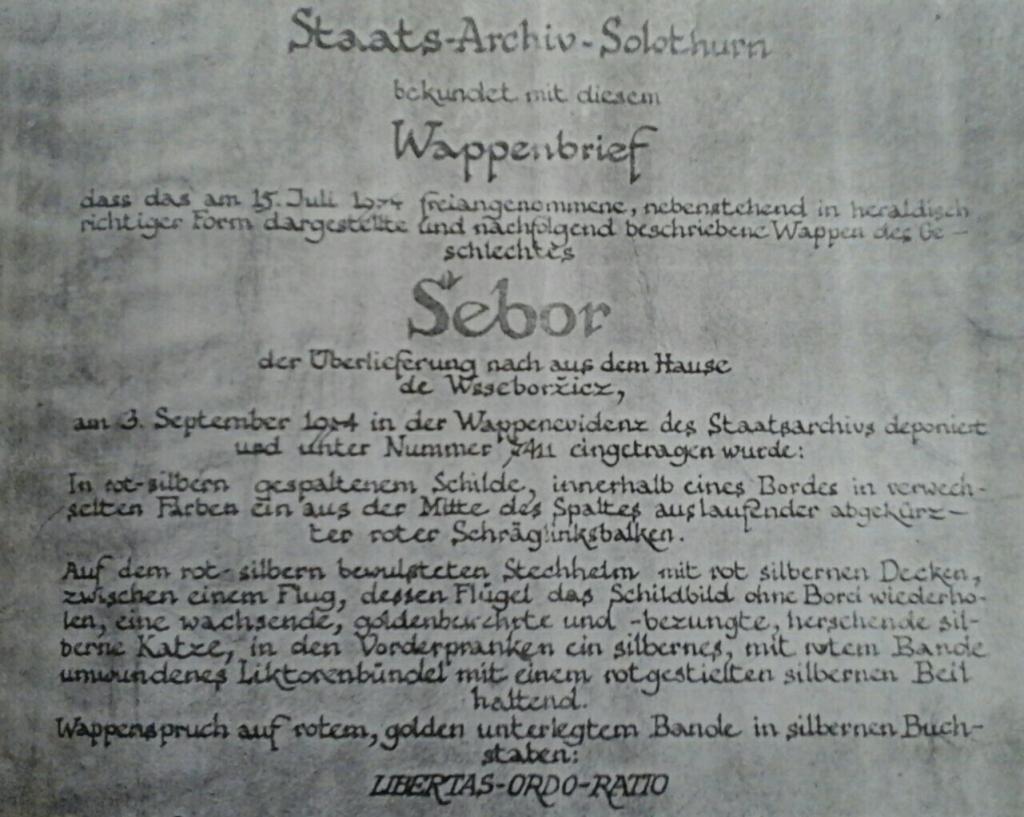 Staats-Archiv-Solothurn
bekundet mit diesem
Wappenbrief
dass das am 15. Juli freiangenommene, nebenstehend in heraldisch
richtiger Form dargestellte und nachfolgend beschriebene Wappen des Ge-
schlechtes
Šebor
der Überlieferung nach aus dem Hause
de Wsseboržicz,
am 3. September in der Wappenevidenz des Staatsarchivs deponiert
und unter Nummer eingetragen wurde:
In rot-silbern gespaltenem Schilde, innerhalb eines Bordes in verwech-
selten Farben ein aus der Mitte des Spaltes auslaufender abgekürz-
ter roter Schräglinksbalken.
Auf dem rot-silbern bewulsteten Stechhelm mit rot silbernen Decken,
zwischen einem Flug, dessen Flügel das Schildbild ohne Bord wiederho-
len, eine wachsende, goldenbewehrte und -bezungte, hersehende sil-
berne Katze, in den Vorderpranken ein silbernes, mit rotem Bande
umwundenes Liktorenbündel mit einem rotgestielten silbernen Beil
haltend.
Wappenspruch auf rotem, golden unterlegtem Bande in silbernen Buch-
staben:
LIBERTAS-ORDO-RATIO